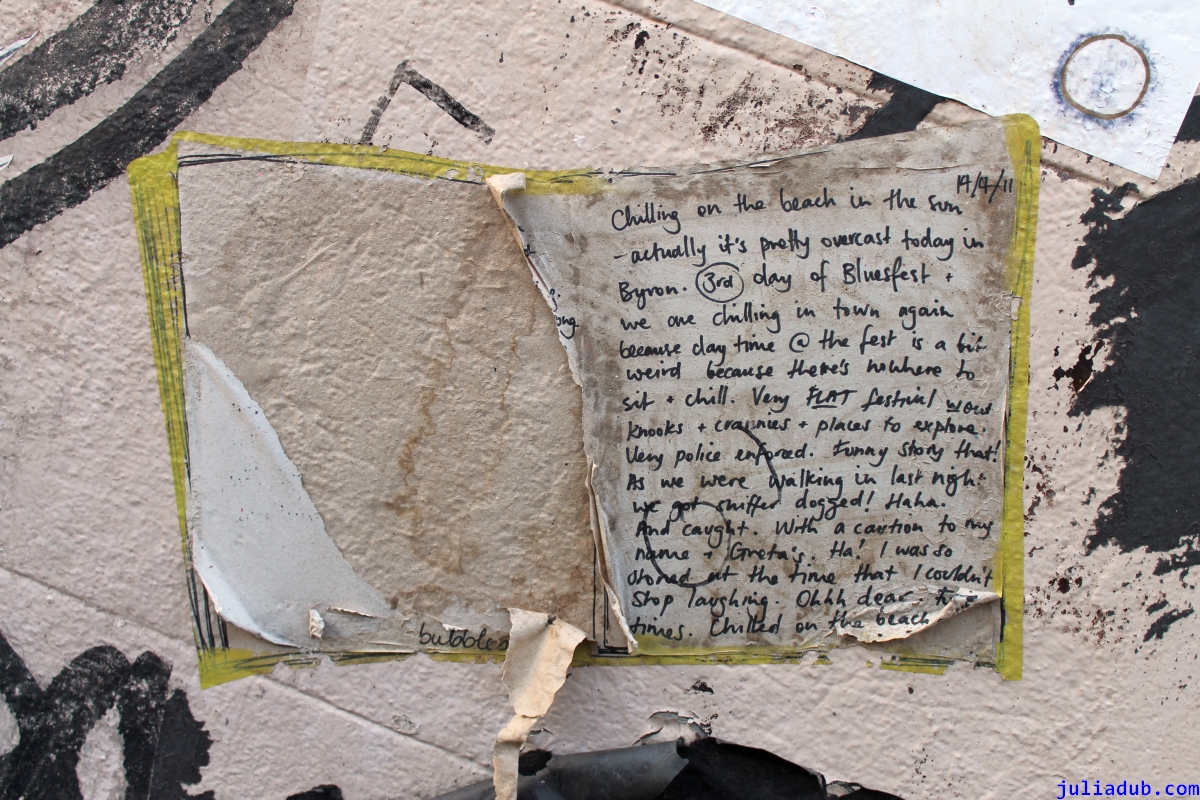 bubbles
14/4/11
Chilling on the beach in the sun
- actually it's pretty overcast today in
Byron. 3rd day of Bluesfest +
we are chilling in town again
because day time @ the fest is a bit
weird because there's nowhere to
sit + chill. Very FLAT festival wout
knooks + crannies + places to explore.
Very police enforced. Funny story that!
As we were walking in last night
we got sniffer dogged! Haha.
And caught. With a caution to my
name + Greta's. Ha! I was so
stoned at the time that I couldn't
stop laughing. Ohhh dear.
times. Chilled on the beach
juliadub.com